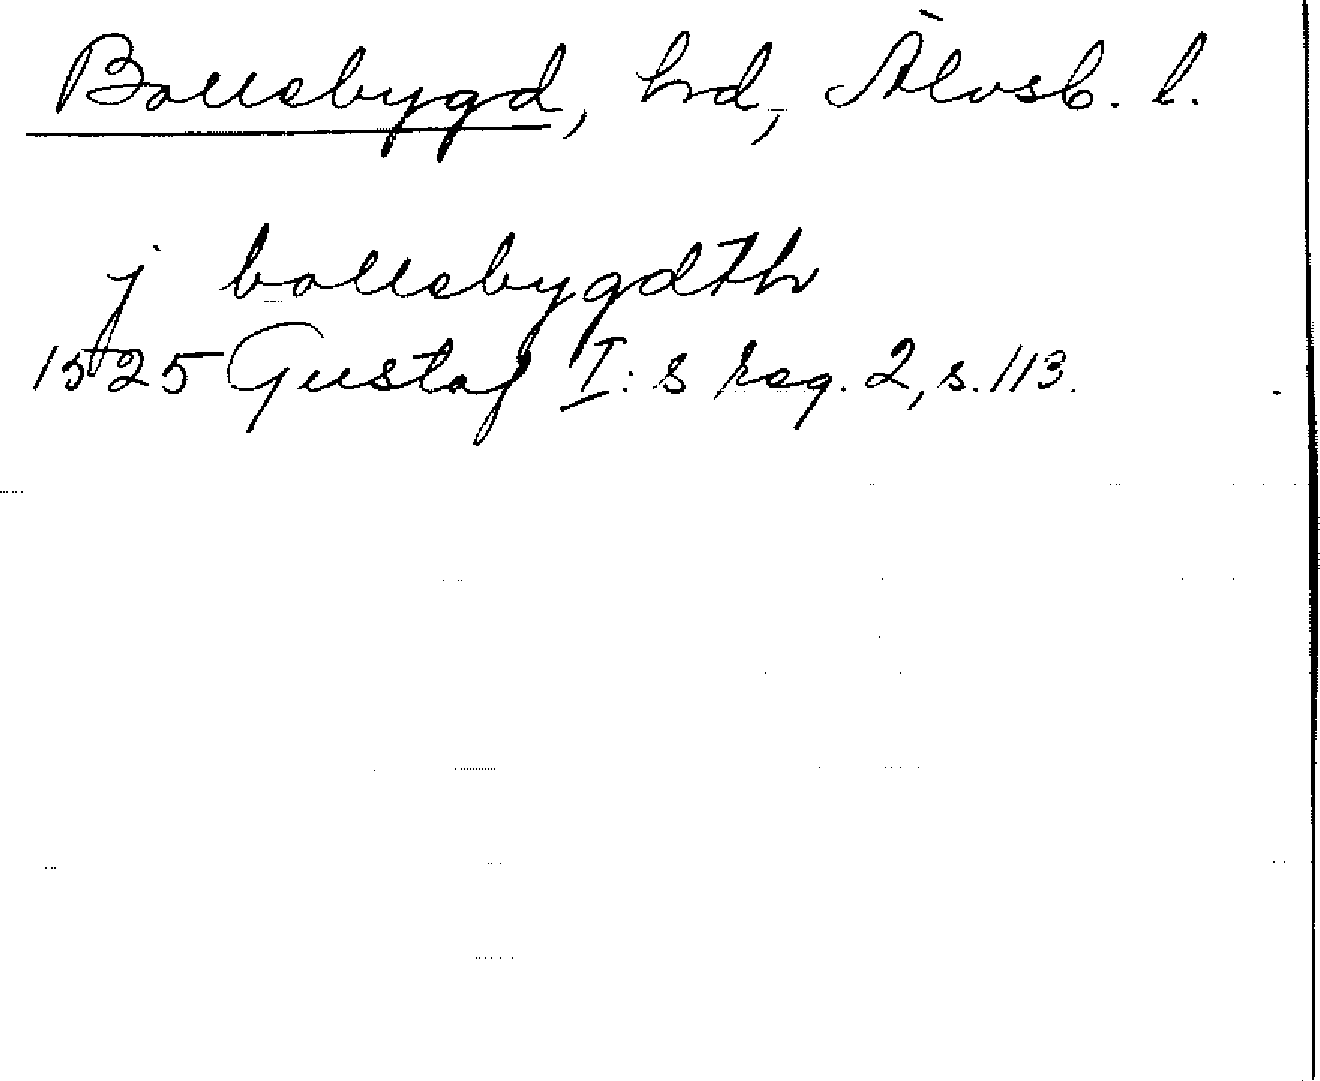 Bollebygd, hd, Älvsb. l.
j bollebygdth
1525 Gustaf I:s reg. 2, s. 113.